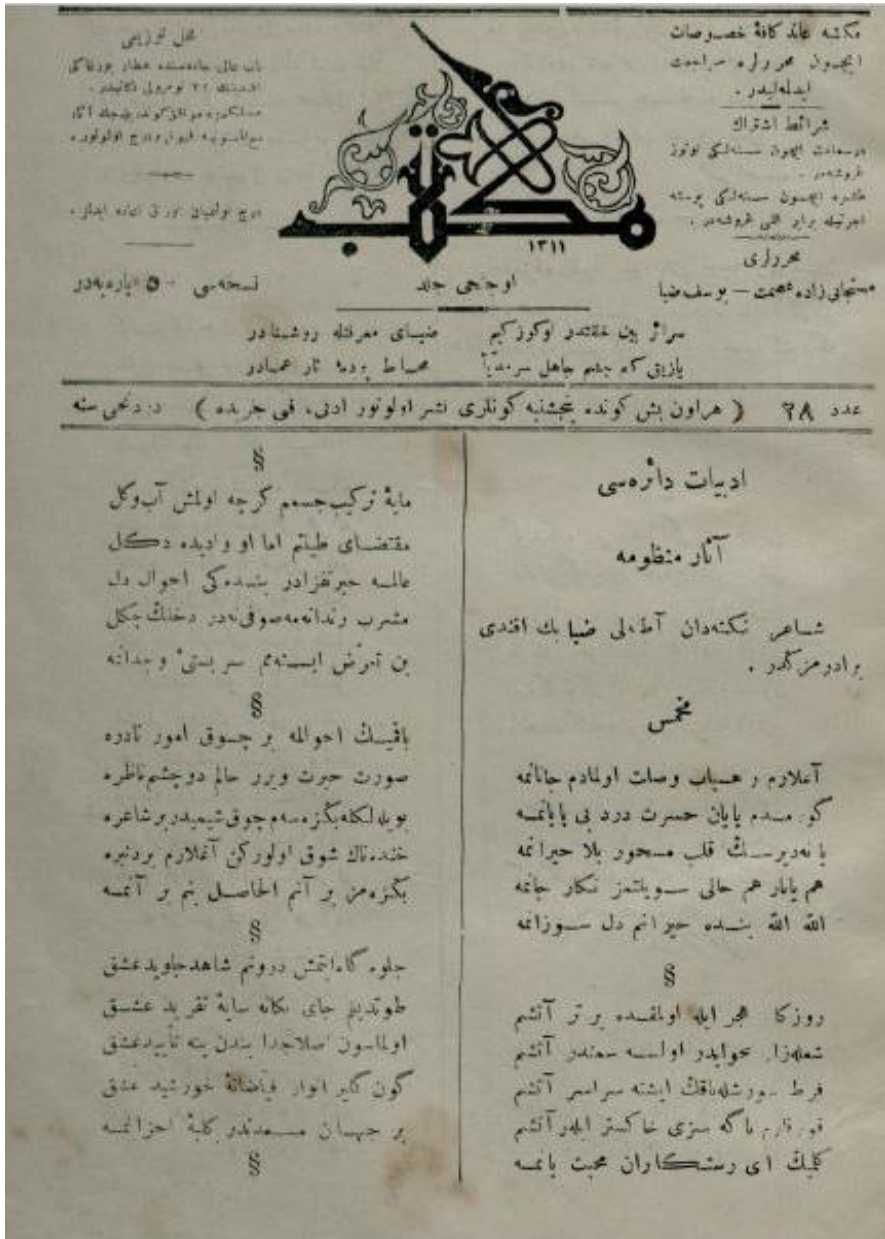 مكتبه عائد كافهٔ خصوصات
ايچون محررلره مراجعت
ايدلمليدر .
شرائط اشتراك
درسعادت ايچون سنه‌لكى اوتوز
غروشدر .
طشره ايچون سنه‌لكى پوسته
اجرتيله برابر اللى غروشدر .
محررلرى
مستجابى زاده عصمت — يوسف ضيا
مكتب
١٣١١
اوچنجى جلد
محل توزيعى
باب عالى جاده‌سنده عطار
افندينك ٢١ نومرولى دكانيدر .
مسلكمزه موافق كوندريله‌جك آثار
مع‌الممنونيه قبول ودرج اولونور .
درج اولنميان اوراق اعاده ايدلمز .
نسخه‌سى ٥٠ پاره‌يه‌در
سرائر بين خلقتدر اوكوز كيم ضياى معرفتله روشنادر
يازيق كه چشم جاهل سرمديّاً محاط پردهٔ تار عمادر
عدد ٢٨ ( هر اون بش كونده پنجشنبه كونلرى نشر اولونور ادبى، فنى جريده ) دردنجى سنه
ادبيات دائره‌سى
آثار منظومه
شاعر نكته‌دان آطه‌لى ضيا بك افندى
برادرمزكدر .
مخمس
آغلارم وصلت اولمادم جانانمه
كورمدم پايان حسرت درد بى پايانمه
يا نه‌ديرسڭ قلب مسحور بلا حيرانمه
هم يانار هم حالى سويلتمز نكار جانمه
الله الله بنده حيرانم دل سوزانمه
§
روزكار هجر ايله اولمقده برتر آتشم
شعله‌زار اولسه سمندر آتشم
فرط سوزشله باقڭ ايشته سراسر آتشم
قورقارم باكه سزى خاكستر ايلر آتشم
كلميڭ اى رستكاران محبت يانمه
§
مايهٔ تركيب جسمم كرچه اولمش آب وكل
مقتضاى طينتم اما او واديده دكل
عالمه حيرتفزادر بنده‌كى احوال دل
مشرب رندانه‌مه صوفى نه‌در دخلڭ چكل
بن تعرّض ايسته‌مم سربستئ وجدانمه
§
باقميڭ احوالمه بر چوق امور نادره
صورت حيرت ويرر حالم دوچشم ناظره
بويله‌لكله بكزه‌سه‌م چوق شيميدر بر شاعره
خنده‌ناك شوق اولوركن آغلارم بردنبره
بكزه‌من بر آنم الحاصل بنم بر آنمه
§
جلوه كاه ايتمش درونم شاهد جاويد عشق
طوتديغم جاى يكانه سايهٔ تفريد عشق
اولماسون اصلا جدا بندن ينه تأييد عشق
كون كبى انوار فياضانهٔ خورشيد عشق
بر جهان كلبهٔ احزانمه
§